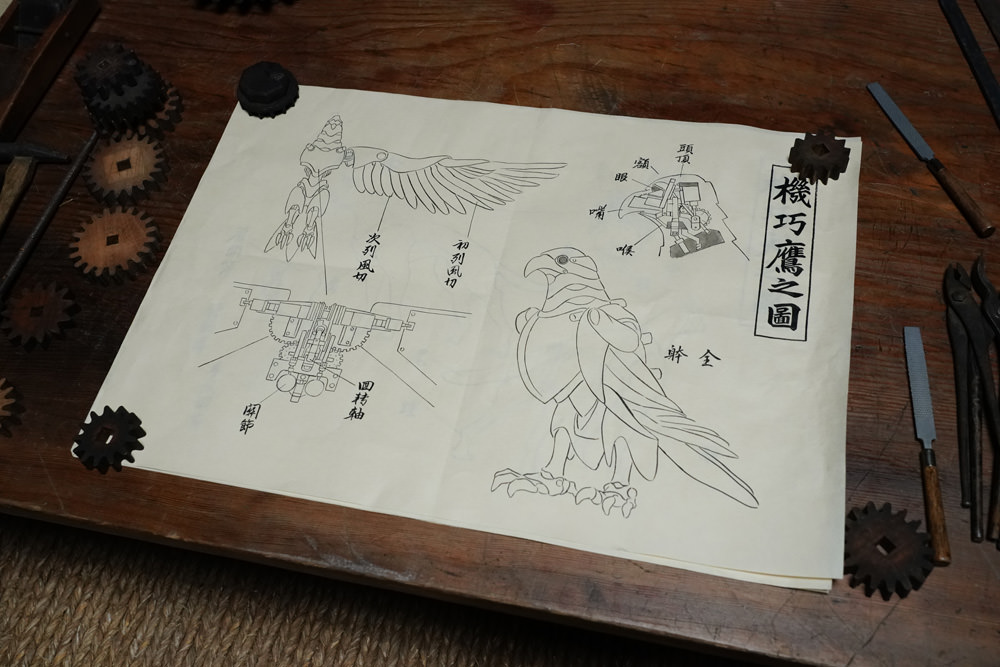 機巧鷹之圖
頭頂
額
眼
嘴
喉
全躰
初列風切
次列風切
回転軸
関節